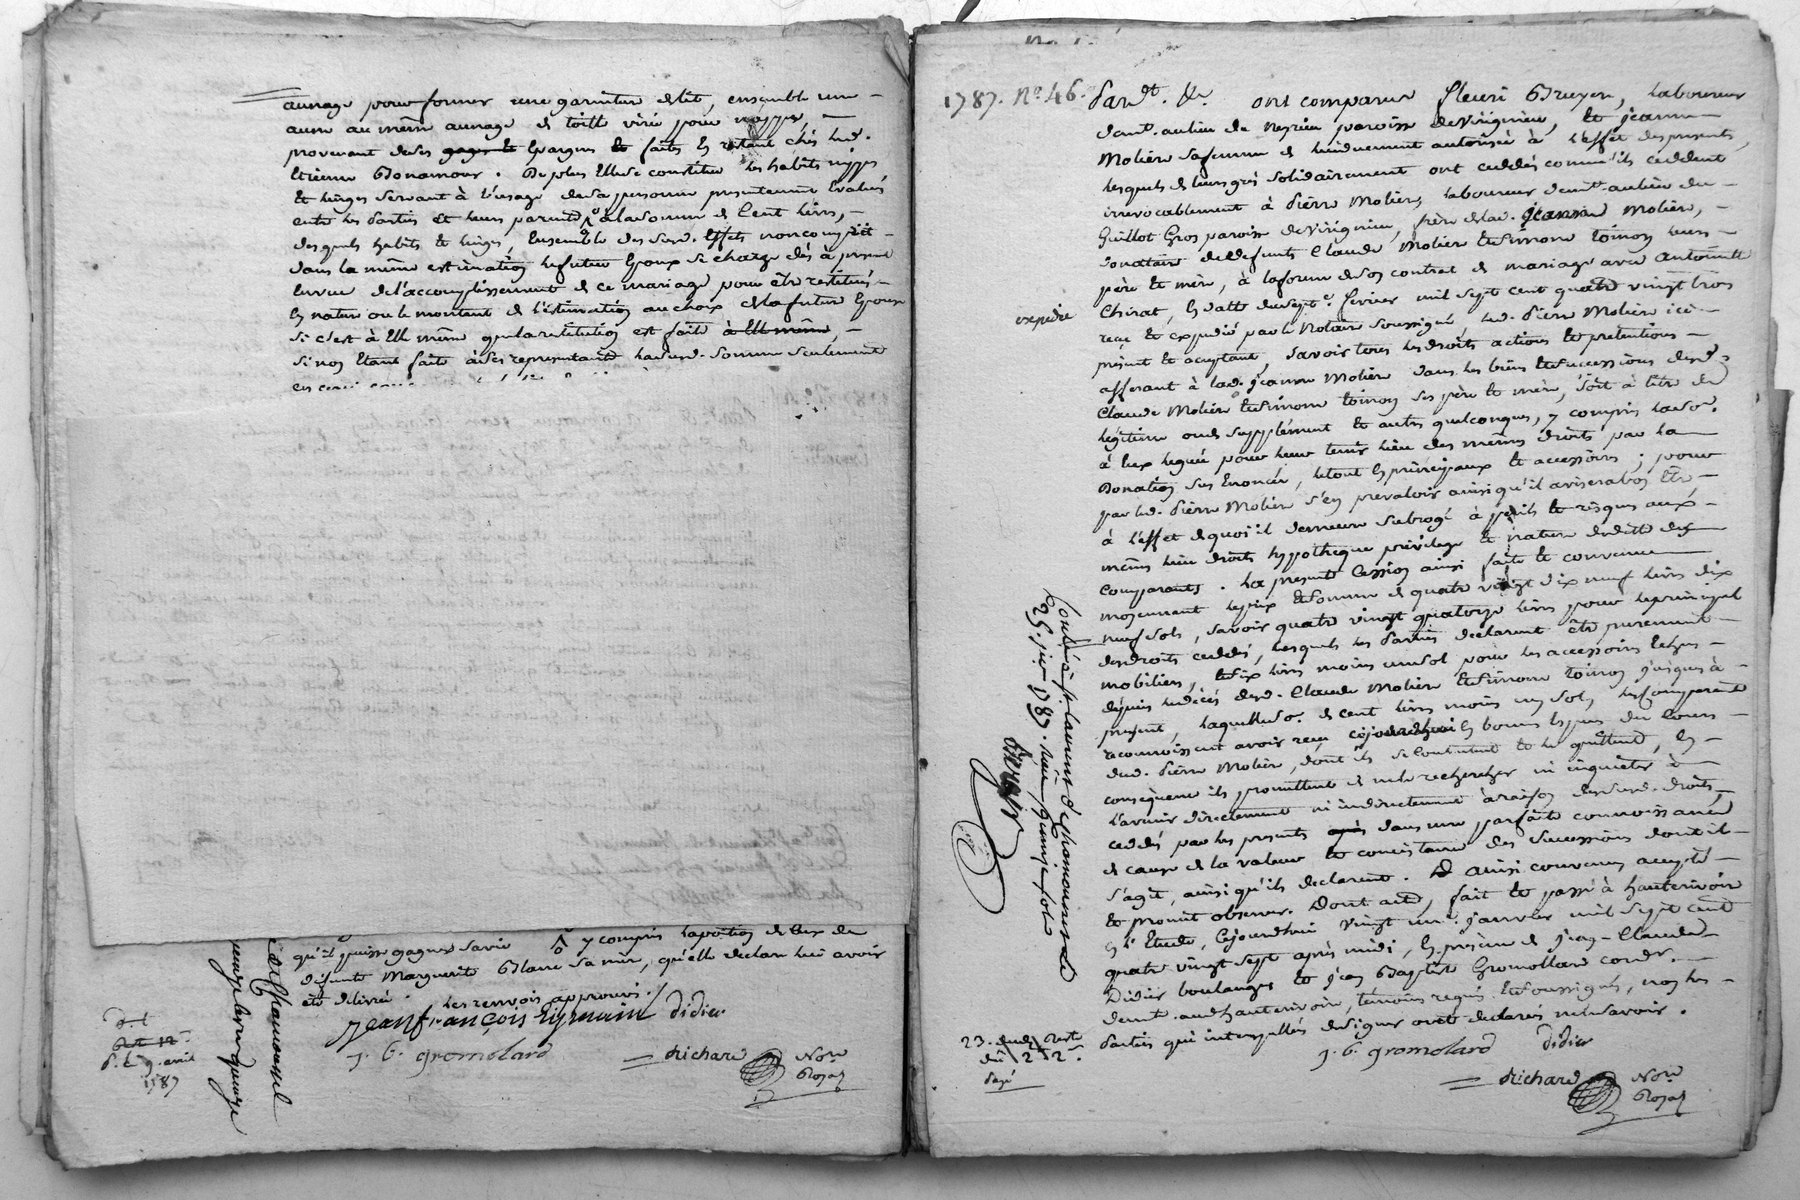 aunage pour former une garniture de lit, ensemble une
aune au même aunage de toille viré pour nappe,
provenant de ses gages et Epargnes et faits en restant chés led.
Etienne Bonamour. De plus Elle se constitue les habits nipps
et linges servant à l'usage de sa personne presentement Evalués
entre les parties et leurs parents à la somme de Cent livres,
desquels habits et linges, Ensemble des susd. Effets non compris
dans la même estimation le futur Epoux se charge dès à present
En vue de l'accomplissement de ce mariage pour être restitués
En nature ou le montant de l'estimation au choix de la future Epouse
si c'est à Elle même que la restitution est faite à Elle même,
si non Etant faite à ses representants lad. somme seulement
qu'il puisse gagner sa vie y compris la portion de Ceux de
defunte Marguerite Blanc sa mère, qu'elle declare lui avoir
été delivré. Les renvois approuvés.
jean françois Epinain didier
j. b. gromolard
Richard Nore
Royal
9. avril
1787
de Chamousset
quinze
1787. No. 46. Pardt. &c. ont comparus fleuri Bruyer, laboureur
demt. au lieu de Neyrieu paroisse de Virignieu, et jeanne
Molière sa femme de lui duement autorisée à l'effet des presents,
Lesquels de leurs gré solidairement ont cedés comme ils cedent
irrevocablement à Pierre Molière, laboureur demt. au lieu du
Guillot Gros paroisse de Virignieu, frère de lad. jeanne Molière,
donataire de defunts Claude Molière et Simone Toinon leurs
père et mère, à la forme de son contrat de mariage avec Antoinette
Chirat, En datte du sept fevrier mil sept cent quatre vingt trois
expedié
reçu et expedié par le Notaire soussigné led. Pierre Molière ici
présent et acceptant, savoir tous les droits actions et prétentions
afferant à lad. jeanne Molière dans les biens et successions desd.
Claude Molière et Simone Toinon ses père et mère, soit à titre de
légitime ou de supplément et autres quelconques, y compris la so.
à Eux leguée pour leur tenir lieu des mêmes droits par la
Donation sus Enoncée, le tout En principaux et accessoires; pour
par led. Pierre Molière s'en prevaloir ainsi qu'il avisera bon Etre,
à l'effet de quoi il demeure subrogé à perils et risques aux
mêmes lieu droits hypotheque privilege et nature de dette des
comparants. La presente Cession ainsi faite et convenue
moyennant le prix et somme de quatre vingt dix neuf livres dix
neuf sols, savoir quatre vingt quatorze livres pour le principal
des droits cedés, lesquels les parties declarent être purement
mobiliers, et six livres moins un sol pour les accessoires Echus
depuis le décés desd. Claude Molière et Simone Toinon jusques à
present, laquelle so. de cent livres moins un sol, les comparants
reconnoissent avoir reçu cejourd'hui En bonnes Especes du Cours
dud. Pierre Molière, dont ils se contentent et le quittent, En
consequence ils promettent de ne le rechercher ni inquieter à
l'avenir directement ni indirectement à raison desd. droits
cedés par les presents dans une parfaite connoissance
de cause de la valeur et consistance des successions dont il
s'agit, ainsi qu'ils declarent. Et ainsi convenu accepté
et promit observer. Dont acte, fait et passé à hauterivoire
En l'Etude, Cejourdhui vingt un janvier mil sept cent
quatre vingt sept après midi, En présence de jean-Claude
Didier boulanger et jean Baptiste Gromollard cordr.
demt. aud hauterivoire, témoins requis et soussignés, non les
parties qui interpellées de signer ont declarés ne le savoir.
j. b. gromolard didier
Richard Nore
Royal
Conlé à St. laurent de Chamousset le
25. jer. 1787. reçu quinze sols